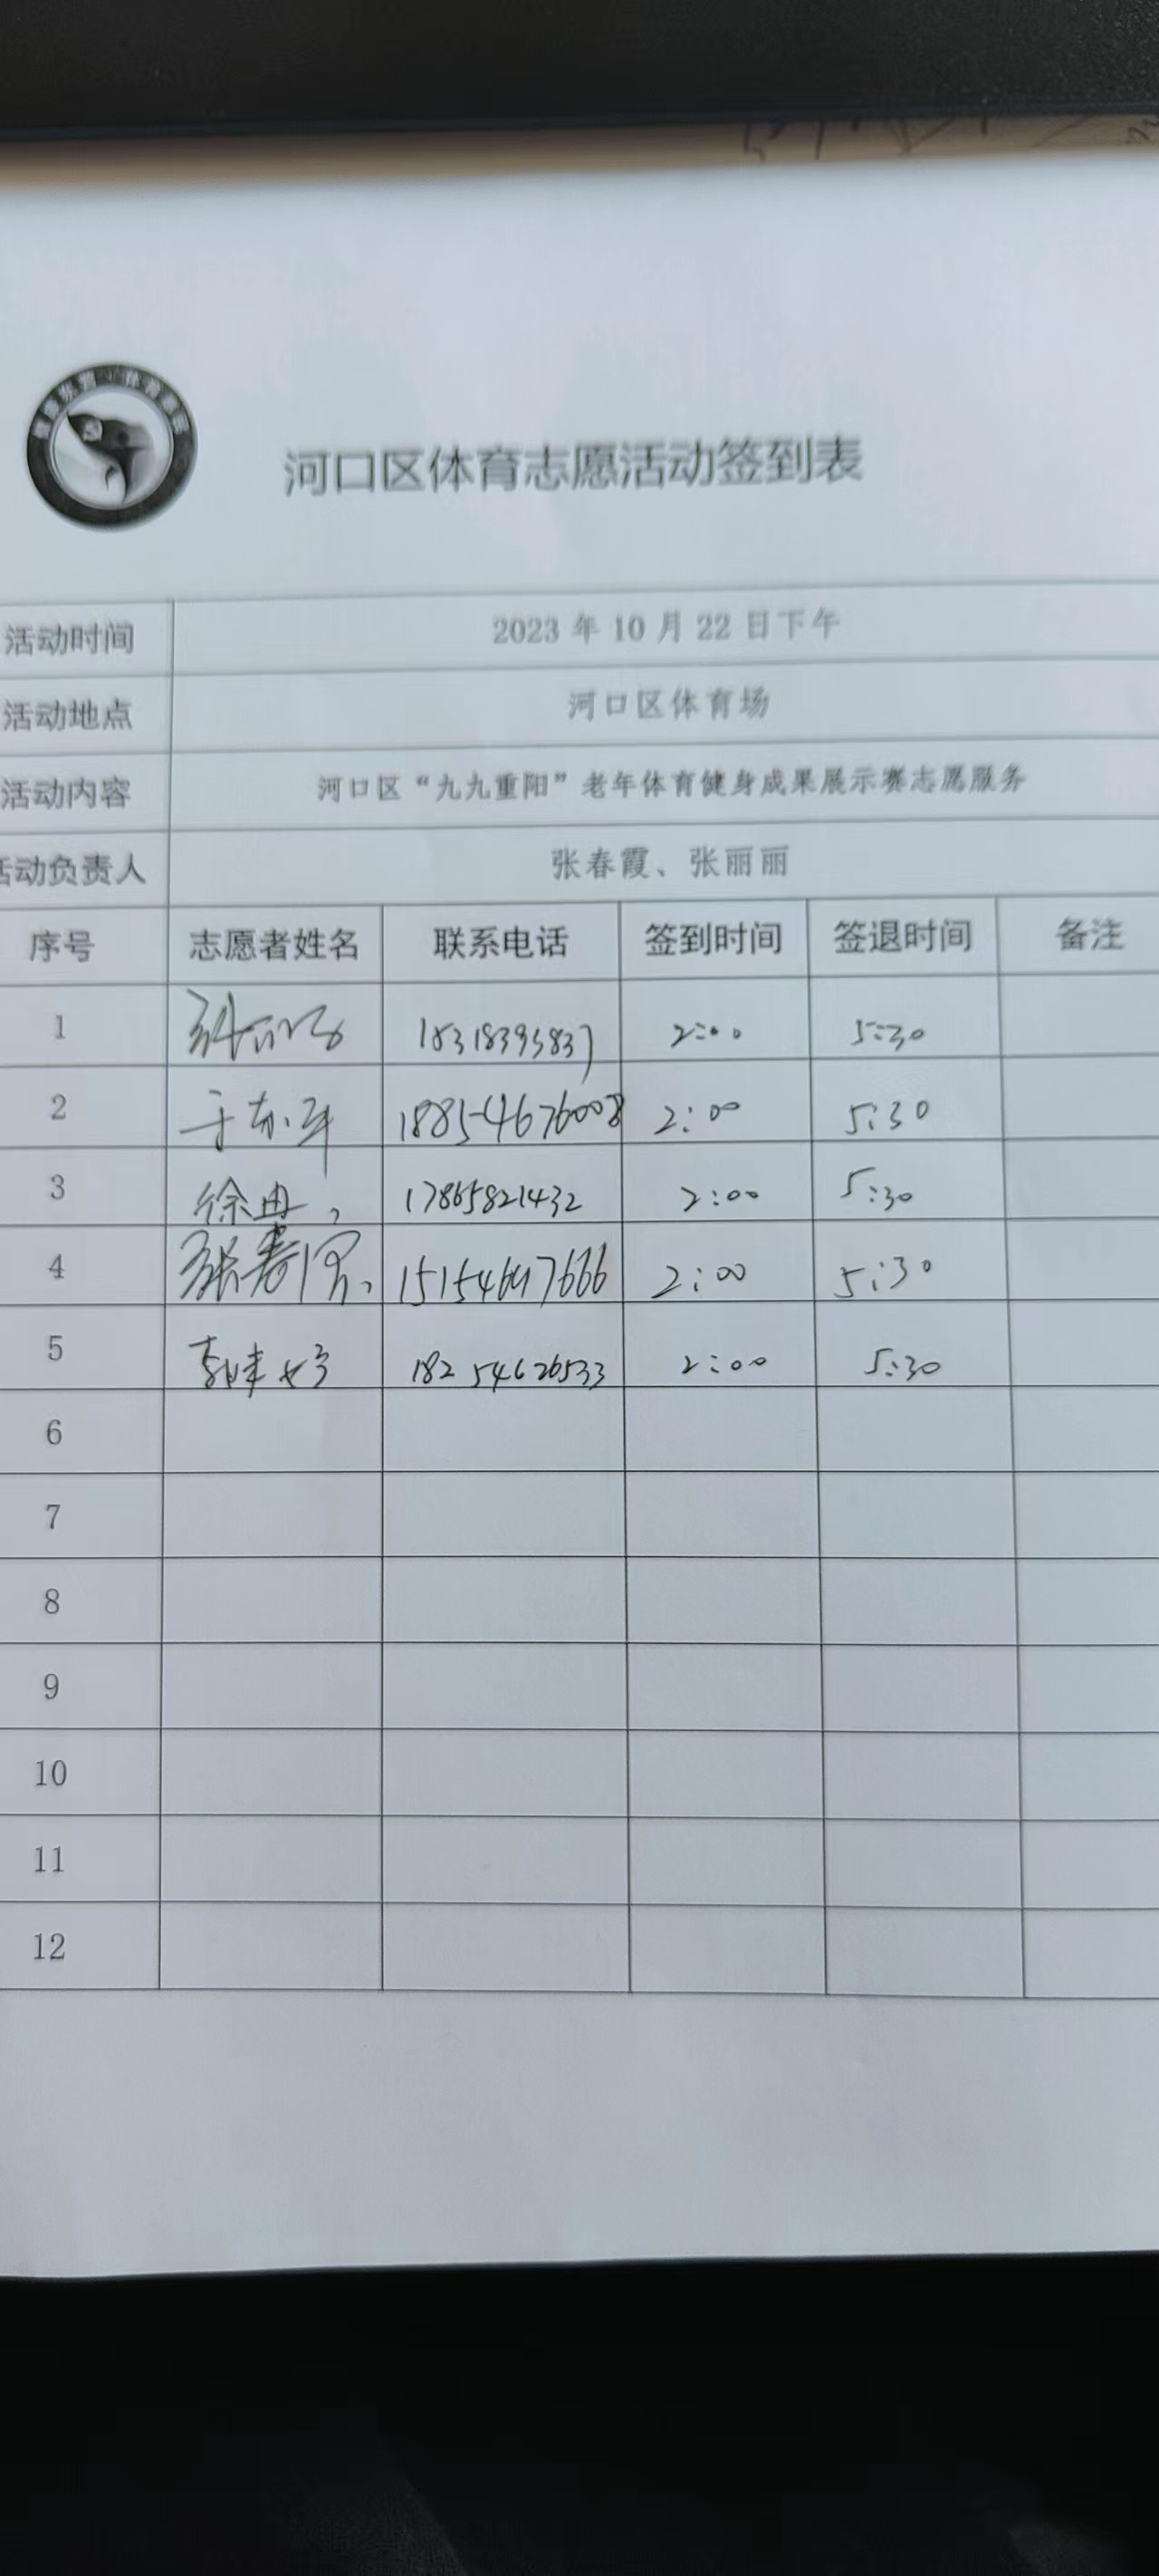 河口区体育志愿活动签到表
活动时间 2023 年 10 月 22 日下午
活动地点 河口区体育场
活动内容 河口区“九九重阳”老年体育健身成果展示赛志愿服务
活动负责人 张春霞、张丽丽
序号 志愿者姓名 联系电话 签到时间 签退时间 备注
1 18318395837 2:00 5:30
2 18854676008 2:00 5:30
3 徐冉 17865821432 2:00 5:30
4 张春霞 15154647666 2:00 5:30
5 18254626533 2:00 5:30
6
7
8
9
10
11
12